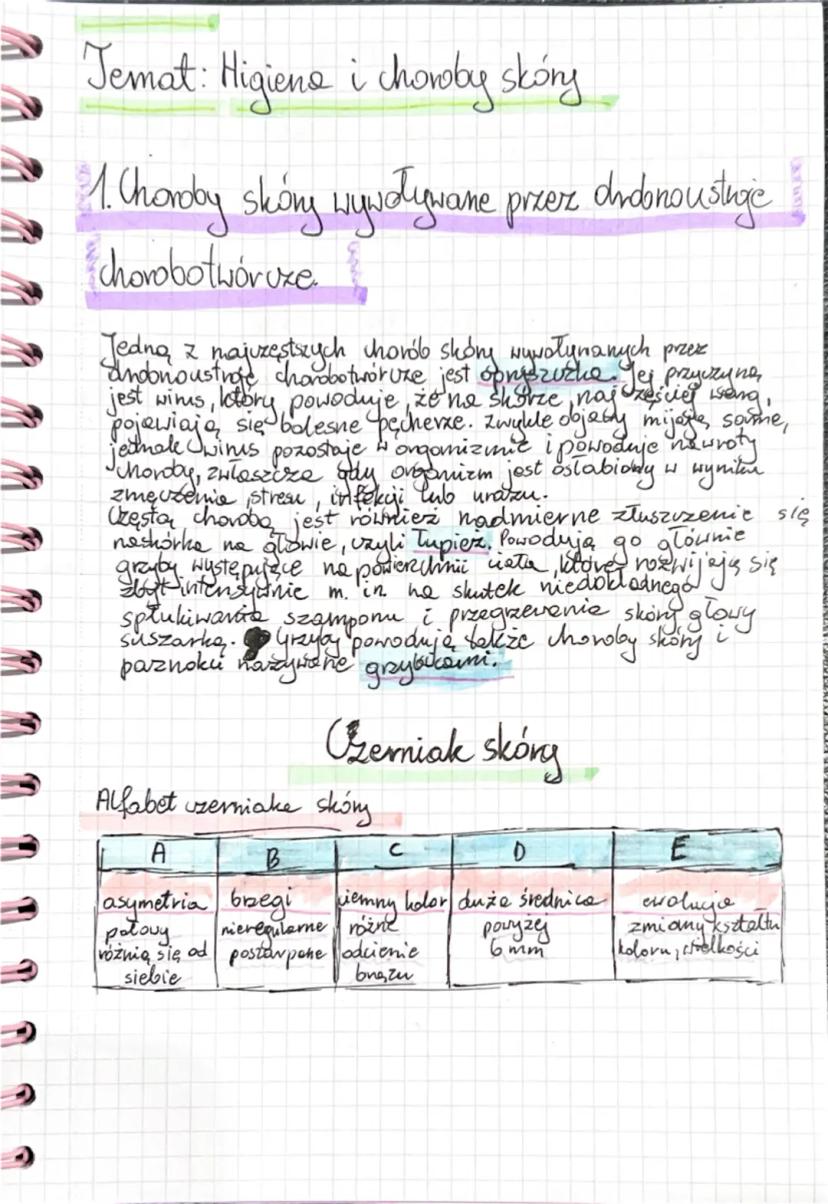 Temat: Higiena i choroby skóry
1. Choroby skóry wywoływane przez drobnoustroje
chorobotwórcze.
Jedną z najczęstszych chorób skóry wywoływanych przez
drobnoustroje chorobotwórcze jest opryszczka. Jej przyczyną
jest wirus, który powoduje, że na skórze, najczęściej warg,
pojawiają się bolesne pęcherze. Zwykle objawy mijają same,
jednak wirus pozostaje w organizmie i powoduje nawroty
choroby, zwłaszcza gdy organizm jest osłabiony w wyniku
zmęczenia, stresu, infekcji lub urazu.
Częstą chorobą jest również nadmierne złuszczenie się
naskórka na głowie, czyli łupież. Powodują go głównie
grzyby występujące na powierzchni ciała, które rozwijają się
zbyt intensywnie m. in. na skutek niedokładnego
spłukiwania szamponu i przegrzewania skóry głowy
suszarką. Grzyby powodują także choroby skóry i
paznokci nazywane grzybicami.
Czerniak skóry
Alfabet czerniaka skóry
A B C D E
asymetria brzegi ciemny kolor duża średnica ewolucja
połowy nieregularne różne powyżej zmiany kształtu
różnią się od postarpane odcienie 6 mm koloru, wielkości
siebie brązu